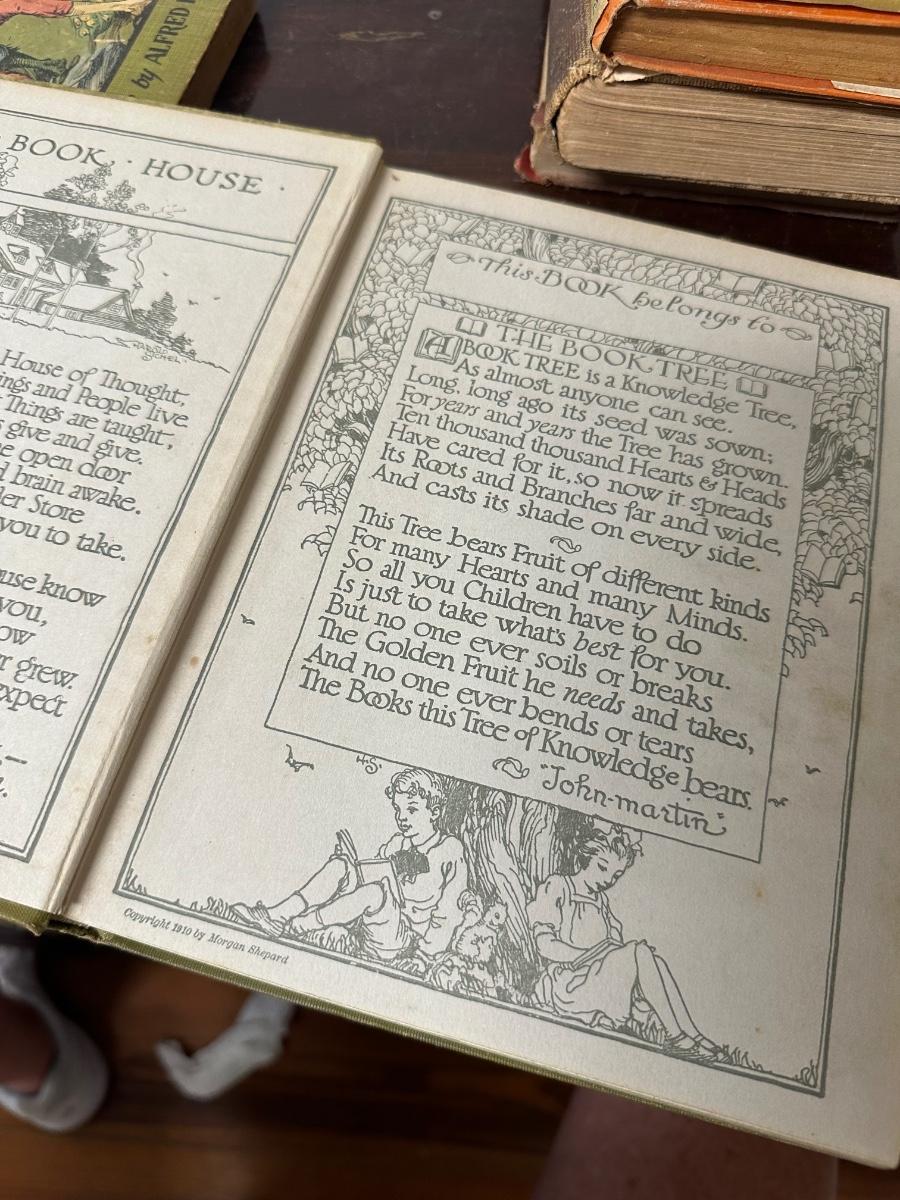 by ALFRED
BOOK · HOUSE ·
HAROLD
SICHEL
House of Thought,
and People live
Things are taught,
give and give.
open door
brain awake.
Store
you to take.
know
you,
grew.
expect
This BOOK belongs to
THE BOOK TREE
A BOOK TREE is a Knowledge Tree,
As almost anyone can see.
Long, long ago its seed was sown;
For years and years the Tree has grown.
Ten thousand thousand Hearts & Heads
Have cared for it, so now it spreads
Its Roots and Branches far and wide,
And casts its shade on every side.
This Tree bears Fruit of different kinds
For many Hearts and many Minds.
So all you Children have to do
Is just to take what's best for you.
But no one ever soils or breaks
The Golden Fruit he needs and takes,
And no one ever bends or tears
The Books this Tree of Knowledge bears.
"John-martin"
H.S.
Copyright 1910 by Morgan Shepard